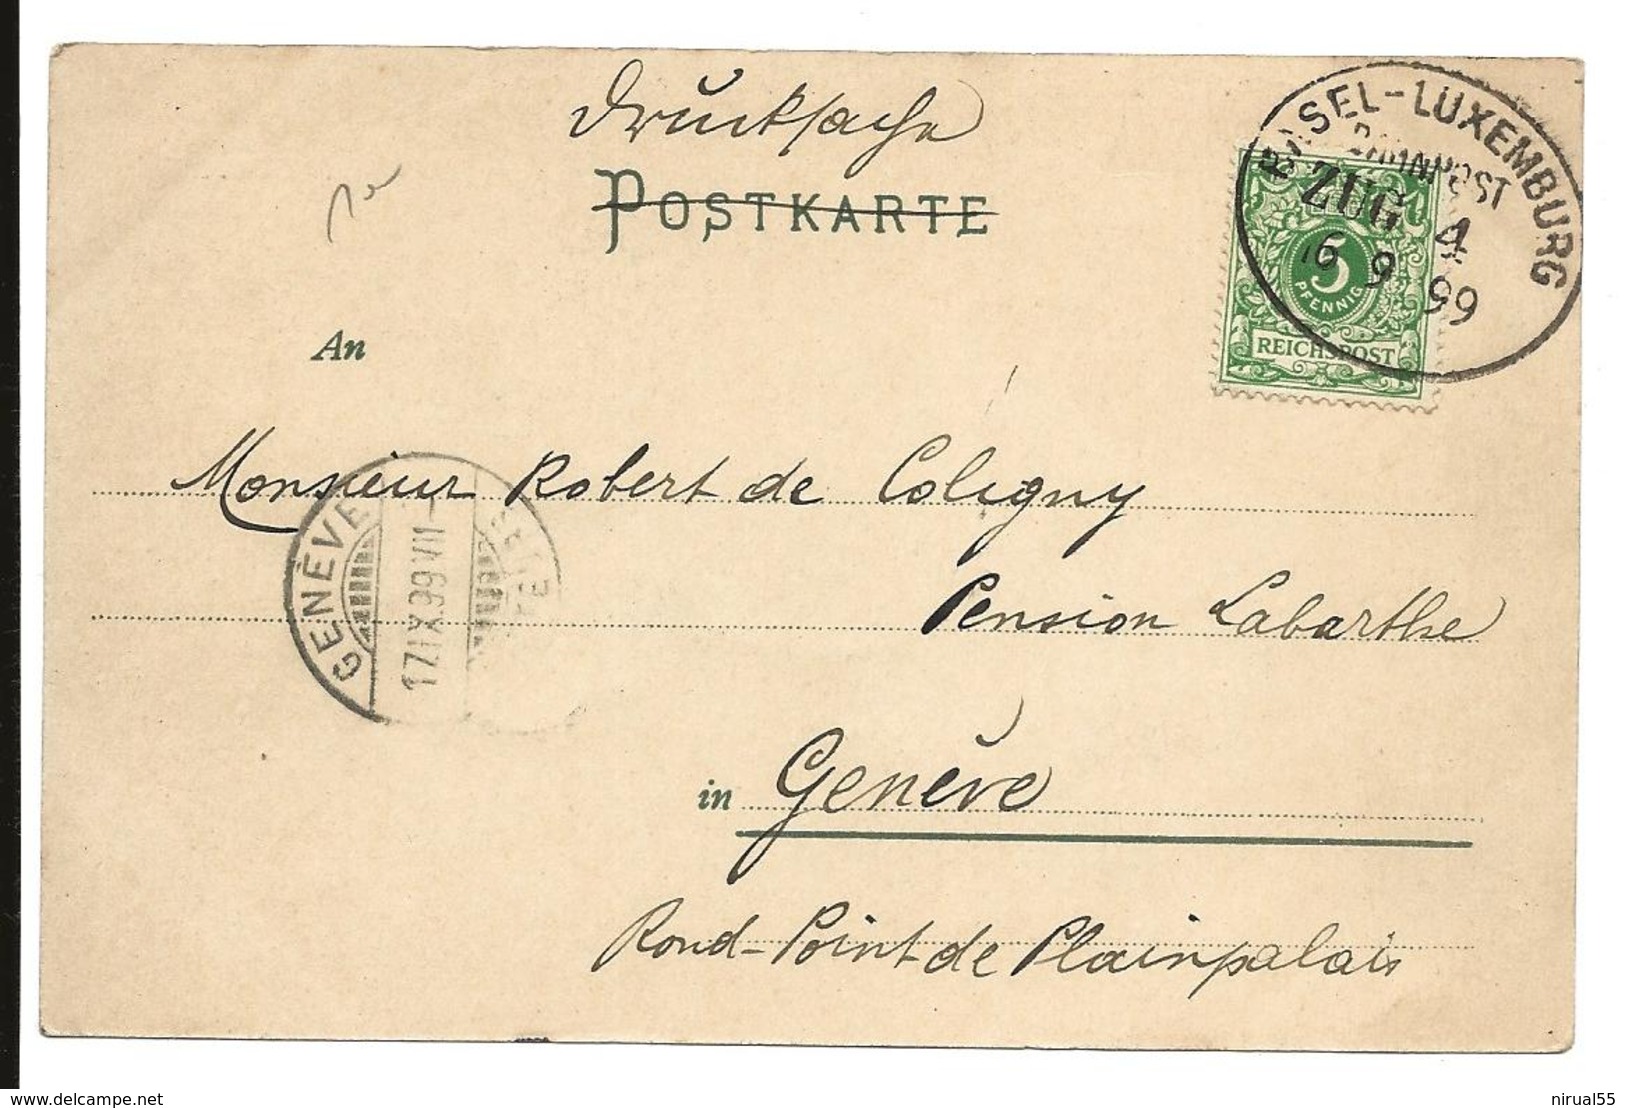 Drucksache
POSTKARTE
BASEL-LUXEMBURG
BAHNPOST
ZUG 4
16 9 99
5
PFENNIG
REICHSPOST
An
Monsieur Robert de Coligny
GENÈVE
17.IX.99.VII-
Pension Labarthe
in Genève
Rond-Point de Plainpalais
www.delcampe.net
nirual55